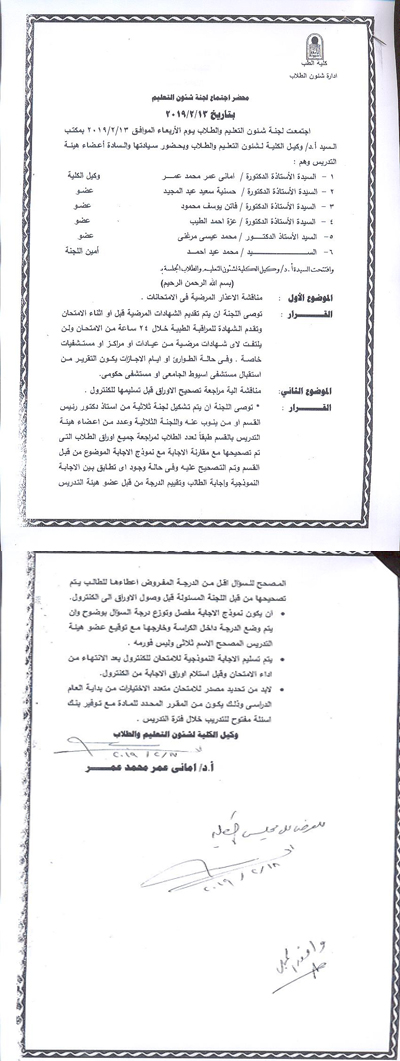 كلية الطب
ادارة شئون الطلاب
محضر اجتماع لجنة شئون التعليم
بتاريخ ٢٠١٩/٢/١٣
اجتمعت لجنة شئون التعليم والطلاب يوم الأربعاء الموافق ٢٠١٩/٢/١٣ بمكتب
السيد أ.د/ وكيل الكلية لشئون التعليم والطلاب وبحضور سيادتها والسادة أعضاء هيئة
التدريس وهم :
١ - السيدة الأستاذة الدكتورة / امانى عمر محمد عمر وكيل الكلية
٢ - السيدة الأستاذة الدكتورة / حسنية سعيد عبد المجيد عضو
٣ - السيدة الأستاذة الدكتورة / فاتن يوسف محمود عضو
٤ - السيدة الأستاذة الدكتورة / عزة احمد الطيب عضو
٥- السيد الأستاذ الدكتور / محمد عيسى مرغنى عضو
٦- السيد / محمد عيد احمد أمين اللجنة
وافتتحت السيدة أ.د/ وكيل الكلية لشئون التعليم والطلاب الجلسة بـ
(بسم الله الرحمن الرحيم)
الموضوع الأول : مناقشة الاعذار المرضية فى الامتحانات .
القرار : توصى اللجنة ان يتم تقديم الشهادات المرضية قبل او اثناء الامتحان
وتقدم الشهادة للمراقبة الطبية خلال ٢٤ ساعة من الامتحان ولن
يلتفت لاى شهادات مرضية من عيادات او مراكز او مستشفيات
خاصة . وفى حالة الطوارئ او ايام الاجازات يكون التقرير من
استقبال مستشفى اسيوط الجامعى او مستشفى حكومى.
الموضوع الثانى : مناقشة الية مراجعة تصحيح الاوراق قبل تسليمها للكنترول .
القرار : * توصى اللجنة ان يتم تشكيل لجنة ثلاثية من استاذ دكتور رئيس
القسم او من ينوب عنه واللجنة الثلاثية وعدد من اعضاء هيئة
التدريس بالقسم طبقاً لعدد الطلاب لمراجعة جميع اوراق الطلاب التى
تم تصحيحها مع مقارنة الاجابة مع نموذج الاجابة الموضوع من قبل
القسم وتم التصحيح عليه وفى حالة وجود اى تطابق بين الاجابة
النموذجية واجابة الطالب وتقييم الدرجة من قبل عضو هيئة التدريس
المصحح للسؤال اقل من الدرجة المفروض اعطاءها للطالب يتم
تصحيحها من قبل اللجنة المسئولة قبل وصول الاوراق الى الكنترول.
• ان يكون نموذج الاجابة مفصل وتوزع درجة السؤال بوضوح وان
يتم وضع الدرجة داخل الكراسة وخارجها مع توقيع عضو هيئة
التدريس المصحح الاسم ثلاثى وليس فورمه .
• يتم تسليم الاجابة النموذجية للامتحان للكنترول بعد الانتهاء من
اداء الامتحان وقبل استلام اوراق الاجابة من الكنترول.
• لابد من تحديد مصدر للامتحان متعدد الاختيارات من بداية العام
الدراسى وذلك يكون من المقرر المحدد للمادة مع توفير بنك
اسئلة مفتوح للتدريب خلال فترة التدريس .
وكيل الكلية لشئون التعليم والطلاب
أ.د/ امانى عمر محمد عمر
للعرض على مجلس الكلية
٢٠١٩/٢/١٨